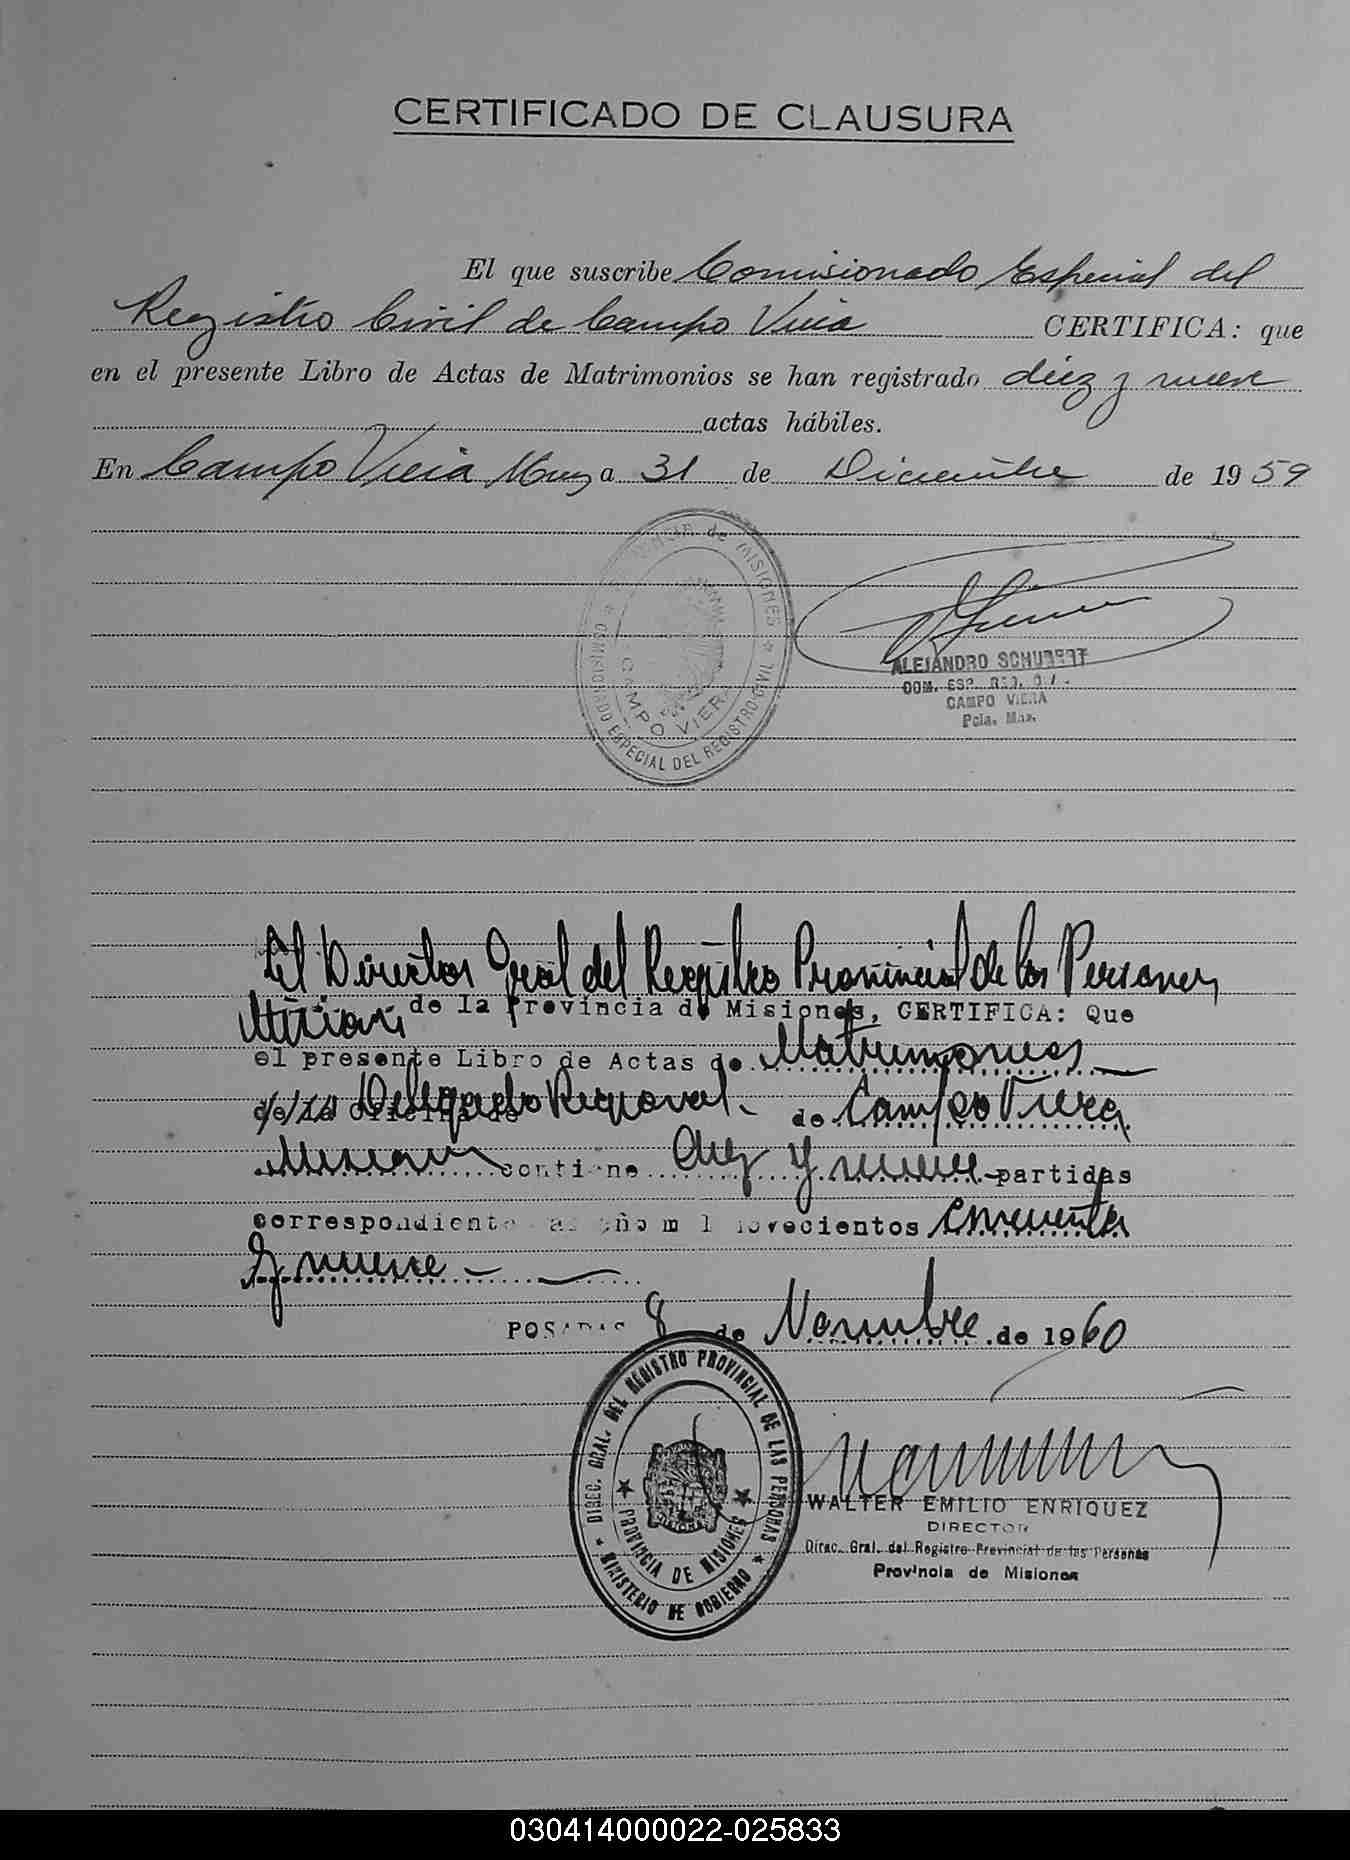 CERTIFICADO DE CLAUSURA
El que suscribe Comisionado Especial del
Registro Civil de Campo Viera CERTIFICA: que
en el presente Libro de Actas de Matrimonios se han registrado diez y nueve
actas hábiles.
En Campo Viera Mnes a 31 de Diciembre de 1959
PROVINCIA de MISIONES
COMISIONADO ESPECIAL DEL REGISTRO CIVIL
CAMPO VIERA
ALEJANDRO SCHUBERT
COM. ESP. REG.
CAMPO VIERA
Pcia. Mnes.
El Director Gral del Registro Provincial de las Personas
Misiones de la Provincia de Misiones, CERTIFICA: Que
el presente Libro de Actas de Matrimonios
Delegado Regional de Campo Viera
Misiones contiene diez y nueve partidas
correspondiente al año mil novecientos cincuenta
y nueve
POSADAS 8 de Noviembre de 1960
DIREC. GRAL. DEL REGISTRO PROVINCIAL DE LAS PERSONAS
PROVINCIA DE MISIONES
MINISTERIO DE GOBIERNO
WALTER EMILIO ENRIQUEZ
DIRECTOR
Direc. Gral. del Registro Provincial de las Personas
Provincia de Misiones
030414000022-025833